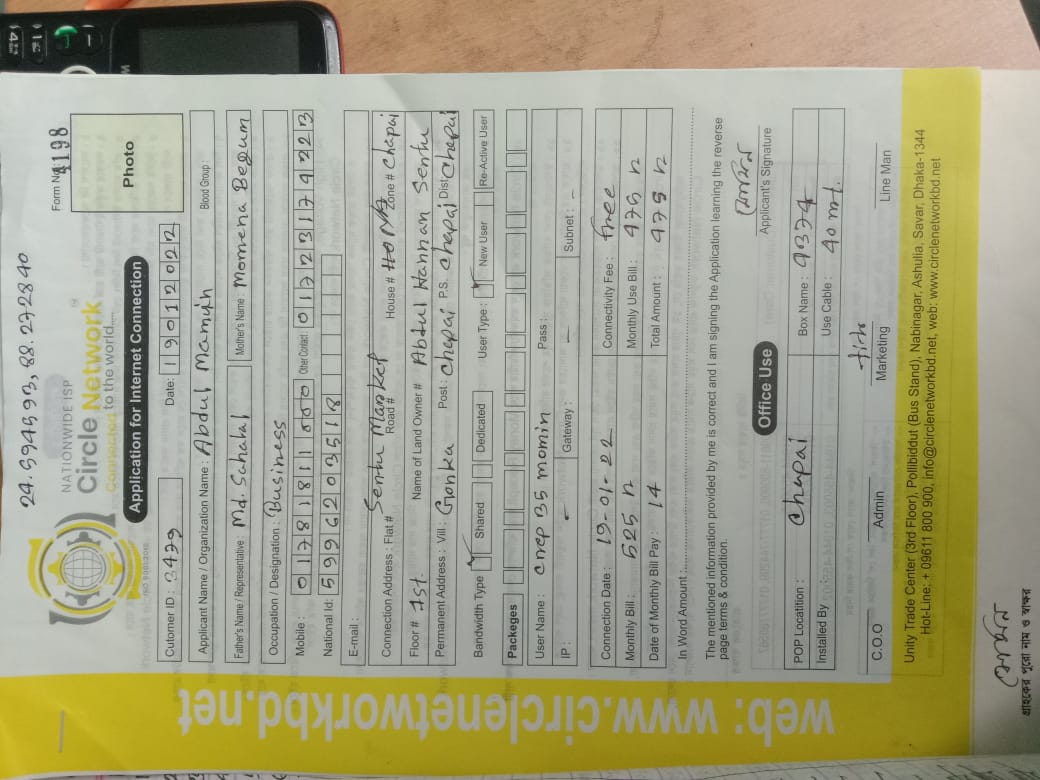 24.594593, 88.272840
NATIONWIDE ISP
Circle Network™
Connected to the world....
Form No: 1198
Application for Internet Connection
Photo
Cutomer ID : 3479 Date: 19012022
Applicant Name / Organization Name : Abdul Mamun Blood Group :
Father's Name / Representative : Md. Sahalal Mother's Name : Momena Begum
Occupation / Designation : Business
Mobile : 01781811000 Other Contact: 01723174223
National Id: 5996203518
E-mail :
Connection Address : Flat # Sentu Market Road # House # Zone # Chapai
Floor # 1st. Name of Land Owner # Abdul Hannan Sentu
Permanent Address : Vill : Gonka Post : Chapai P.S. Chapai Dist Chapai
Bandwidth Type Shared Dedicated User Type : New User Re-Active User
Packeges
User Name : cnep 35 momin Pass :
IP : – Gateway : – Subnet : –
Connection Date : 19-01-22 Connectivity Fee : free
Monthly Bill : 525 Monthly Use Bill : 475
Date of Monthly Bill Pay : 14 Total Amount : 475
In Word Amount :
The mentioned information provided by me is correct and I am signing the Application learning the reverse
page terms & condition.
Applicant's Signature
Office Use
POP Locatition : Chapai Box Name : 90374
Installed By Use Cable : 40 mt.
C.O.O Admin Marketing Line Man
Unity Trade Center (3rd Floor), Pollibiddut (Bus Stand), Nabinagar, Ashulia, Savar, Dhaka-1344
Hot-Line: + 09611 800 900, info@circlenetworkbd.net, web: www.circlenetworkbd.net
web: www.circlenetworkbd.net
গ্রাহকের পুরো নাম ও স্বাক্ষর